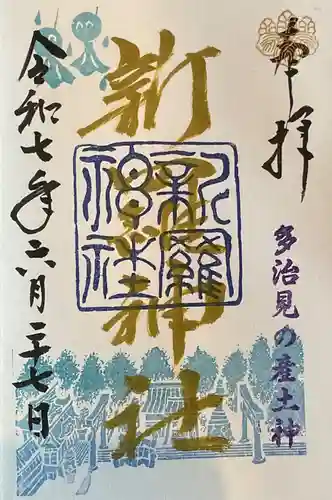 奉拝
多治見の産土神
新羅神社
新羅神社
令和七年六月二十七日